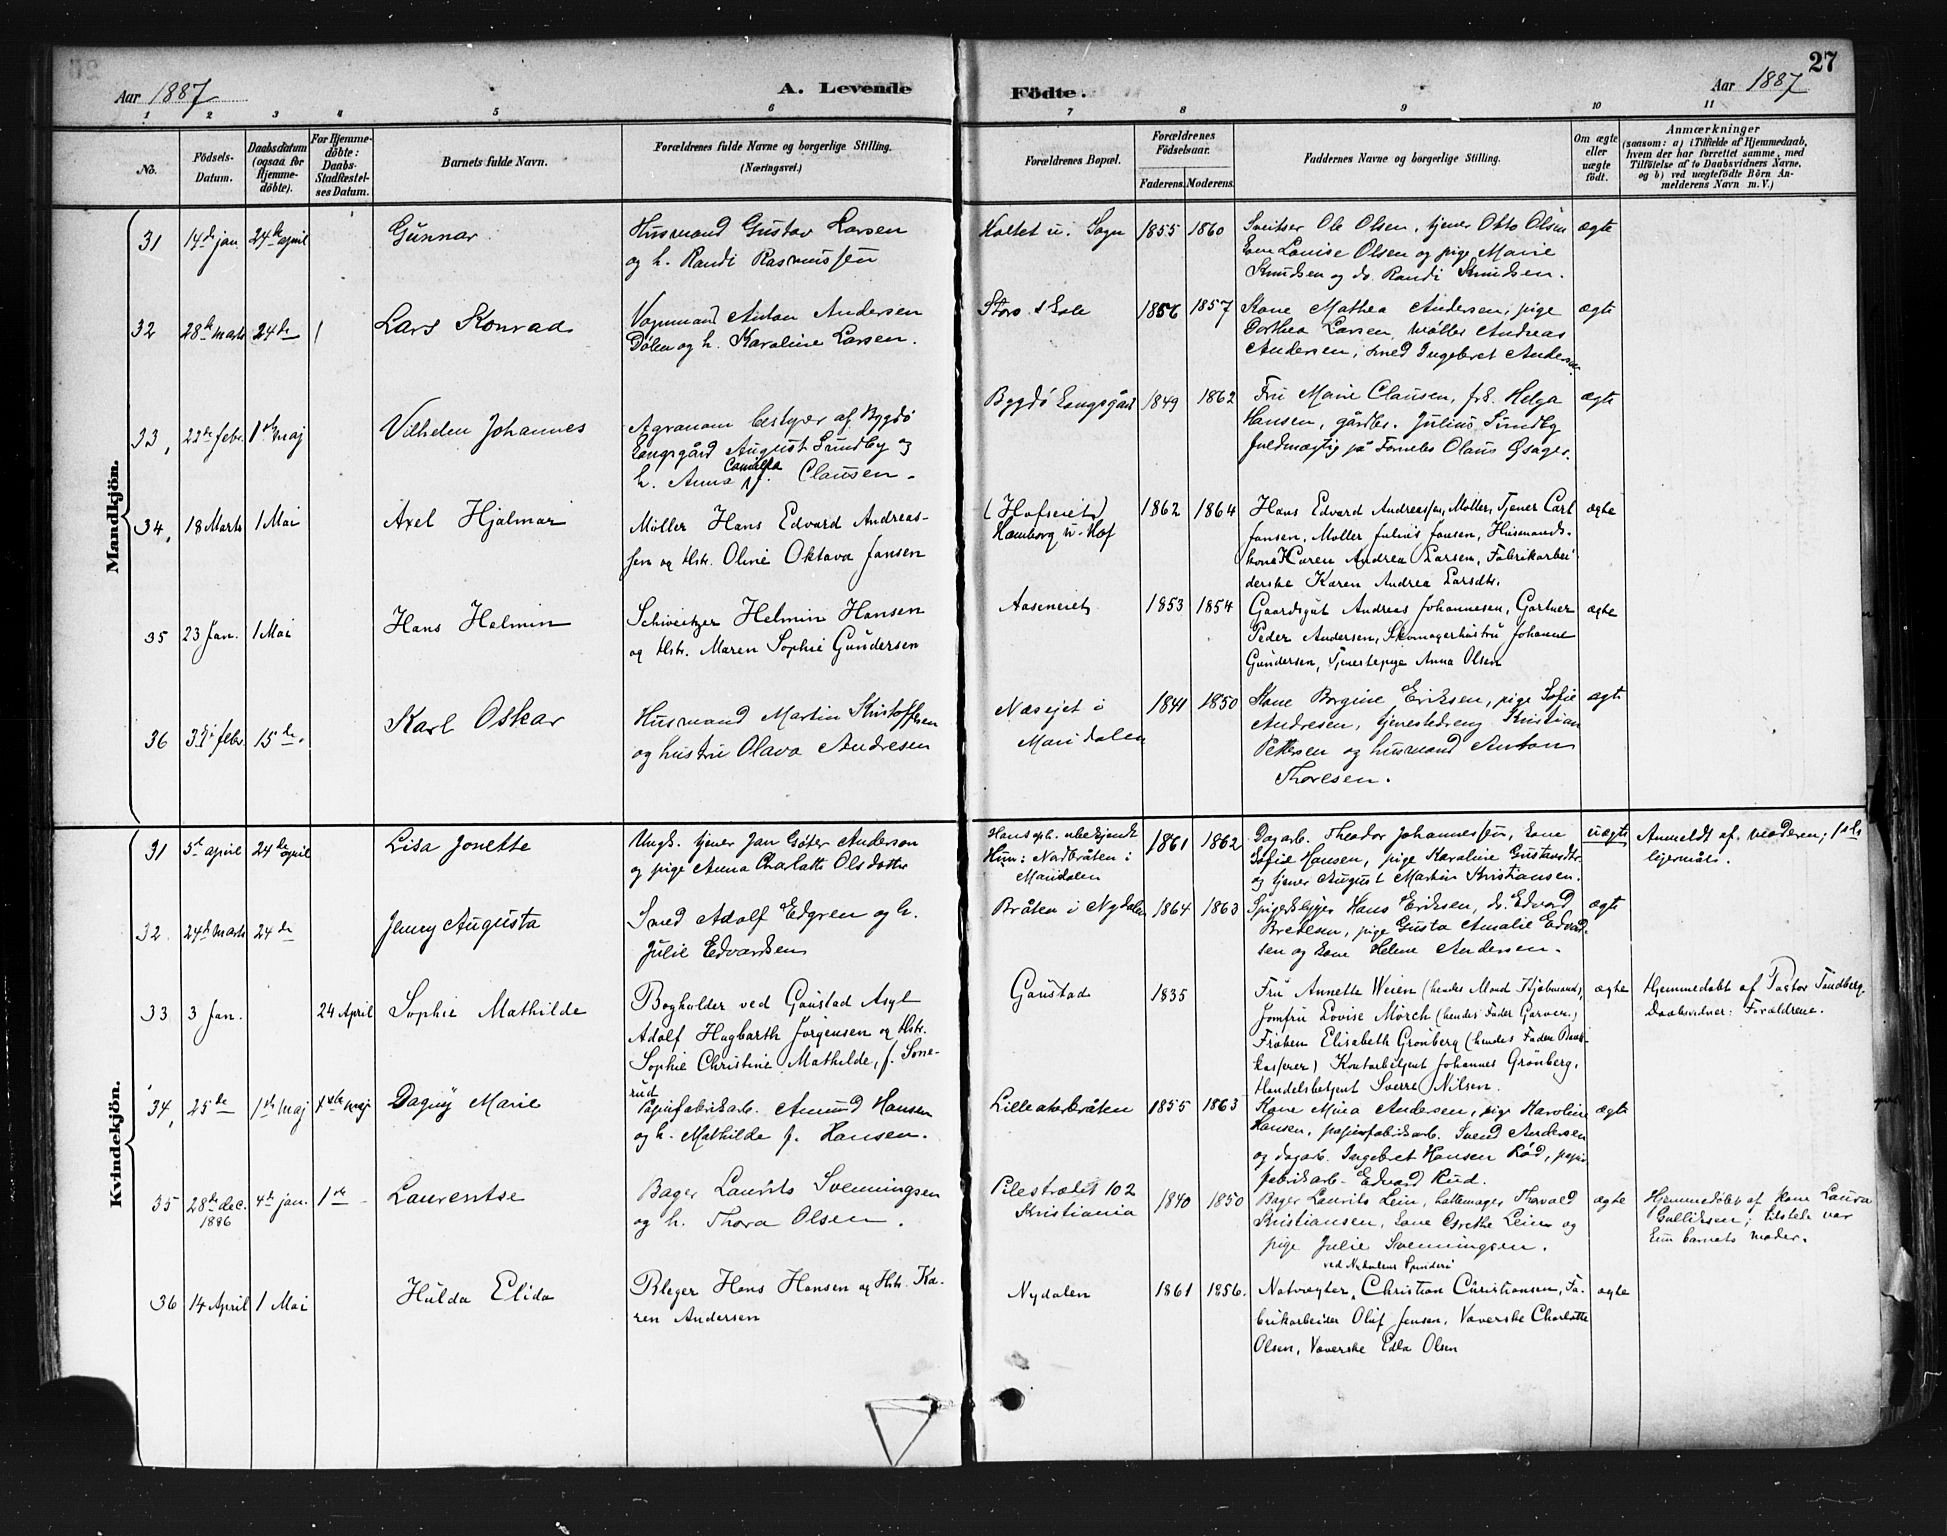 27
Aar 1887
A. Levende
Födte.
Aar 1887
1 2 3 4 5 6 7 8 9 10 11
No.
Födsels-
Datum.
Daabsdatum
(ogsaa for
Hjemme-
döbte).
For Hjemme-
döbte:
Daabs-
Stadfæstel-
ses Datum.
Barnets fulde Navn.
Forældrenes fulde Navne og borgerlige Stilling.
(Næringsvei.)
Forældrenes Bopæl.
Forældrenes
Födselsaar.
Faderens. Moderens.
Faddernes Navne og borgerlige Stilling.
Om ægte
eller
uægte
födt.
Anmærkninger
(saasom: a) i Tilfælde af Hjemmedaab,
hvem der har forrettet samme, med
Tilföielse af to Daabsvidners Navne,
og b) ved uægtefödte Börn An-
melderens Navn m. V.)
Mandkjön.
31 14de jan 24de april Gunnar
Husmand Gustav Larsen
og h. Randi Rasmussen
Holtet u. Sogn 1855 1860
Sveitser Ole Olsen, tjener Otto Olsen
Kone Louise Olsen og pige Marie
Knudsen og do. Randi Knudsen.
ægte
32 28de marts 24de Lars Konrad
Vognmand Anton Andersen
Dölen og h. Karoline Larsen.
Storo 1856 1857
Kone Mathea Andersen, pige
Dorthea Larsen, möller Andreas
Andersen, smed Ingebret Andersen.
ægte
33, 22de febr. 1ste maj Vilhelm Johannes
Agronom bestyrer af Bygdö
Kongsgård August Sundby og
h. Anna Camilla f. Clausen.
Bygdö Kongsgård 1849 1862
Fru Marie Clausen, frk. Helga
Hansen, gårdbr. Julius Sundby
fuldmægtig på Fornebo Olaus Øsager.
ægte
34, 18 Marts 1 Mai Axel Hjalmar
Møller Hans Edvard Andreas-
sen og Hstr. Oline Oktava Jansen
(Hofseiet)
Hamborg u. Hof
1862 1864
Hans Edvard Andreassen, Møller, Tjener Carl
Jansen, Møller Julius Jansen, Husmands-
kone Karen Andrea Larsen, Fabrikarbei-
derske Karen Andrea Larsdtr.
ægte
35 23 Jan. 1 Mai Hans Helmin
Schweitzer Helmin Hansen
og Hstr. Maren Sophie Gundersen
Aaseneiet 1853 1854
Gaardsgut Andreas Johannesen, Gartner
Peder Andersen, Skomagerhustru Johanne
Gundersen, Tjenestepige Anna Olsen
ægte
36 3die febr. 15de. Karl Oskar
Husmand Martin Kristoffersen
og hustru Olava Andresen
Næsejet i
Maridalen
1841 1850
Kone Bergine Eriksen, pige Sofie
Andresen, tjenestedreng Kristian
Pettersen og husmand Anton
Thoresen.
ægte
Kvindekjön.
31 5te april 24de april Lisa Jonette
Ungk. tjener Jan Göter Anderson
og pige Anna Charlotte Olsdotter
Hans oph. ubekjendt
Hun: Nordbråten i
Maridalen
1861 1862
Dagarb. Theodor Johannessen, kone
Sofie Hansen, pige Karoline Gustavsdtr.
og tjener August Martin Kristiansen.
uægte
Anmeldt af moderen; 1ste
lejermål.
32 24de marts 24de Jenny Augusta
Smed Adolf Edgren og h.
Julie Edvardsen
Bråten i Nydalen 1864 1863
Spigerklipper Hans Eriksen, do. Edvard
Bredesen, pige Gusta Amalie Edvard-
sen og kone Helene Andersen.
ægte
33 3 Jan. 24 April Sophie Mathilde
Bogholder ved Gaustad Asyl
Adolf Hagbarth Jörgensen og Hstr.
Sophie Christine Mathilde, f. Sone-
rud
Gaustad 1835
Fru Annette Weien (hendes Mand Kjöbmand),
Jomfru Lovise Mörch (hendes Fader Garver.)
Fröken Elisabeth Grönberg (hendes Fader Bank-
kasserer) Kontorbetjent Johannes Grönberg,
Handelsbetjent Sverre Nilsen.
ægte
Hjemmedøbt af Pastor Tandberg.
Daabsvidner: Forældrene.
34, 25de 1ste maj 1ste maj Dagny Marie
Papirfabrikarb. Amund Hansen
og h. Mathilde f. Hansen.
Lilleakerbråten 1855 1863
Kone Mina Andersen, pige Karoline
Hansen, papirfabrikarb. Svend Andersen
og dagarb. Ingebret Hansen Röd, papir-
fabrikarb. Edvard Rud.
ægte
35 28de dec. 1886 4de jan. 1ste Laurentse
Bager Laurits Svenningsen
og h. Thora Olsen.
Pilestrædet 102
Kristiania
1840 1850
Bager Laurits Lein, hattemager Thorvald
Kristiansen, kone Grethe Lein og
pige Julie Svenningsen.
ægte
Hjemmedøbt af kone Laura
Gulliksen; tilstede var
kun barnets moder.
36 14 April 1 Mai Hulda Elida
Bleger Hans Hansen og Hstr. Ka-
ren Andersen
Nydalen 1861 1856.
ved Nydalens Spinderi
Natvægter Christian Christiansen, Fa-
brikarbeider Oluf Jensen, Væverske Charlotte
Olsen, Væverske Edla Olsen
ægte